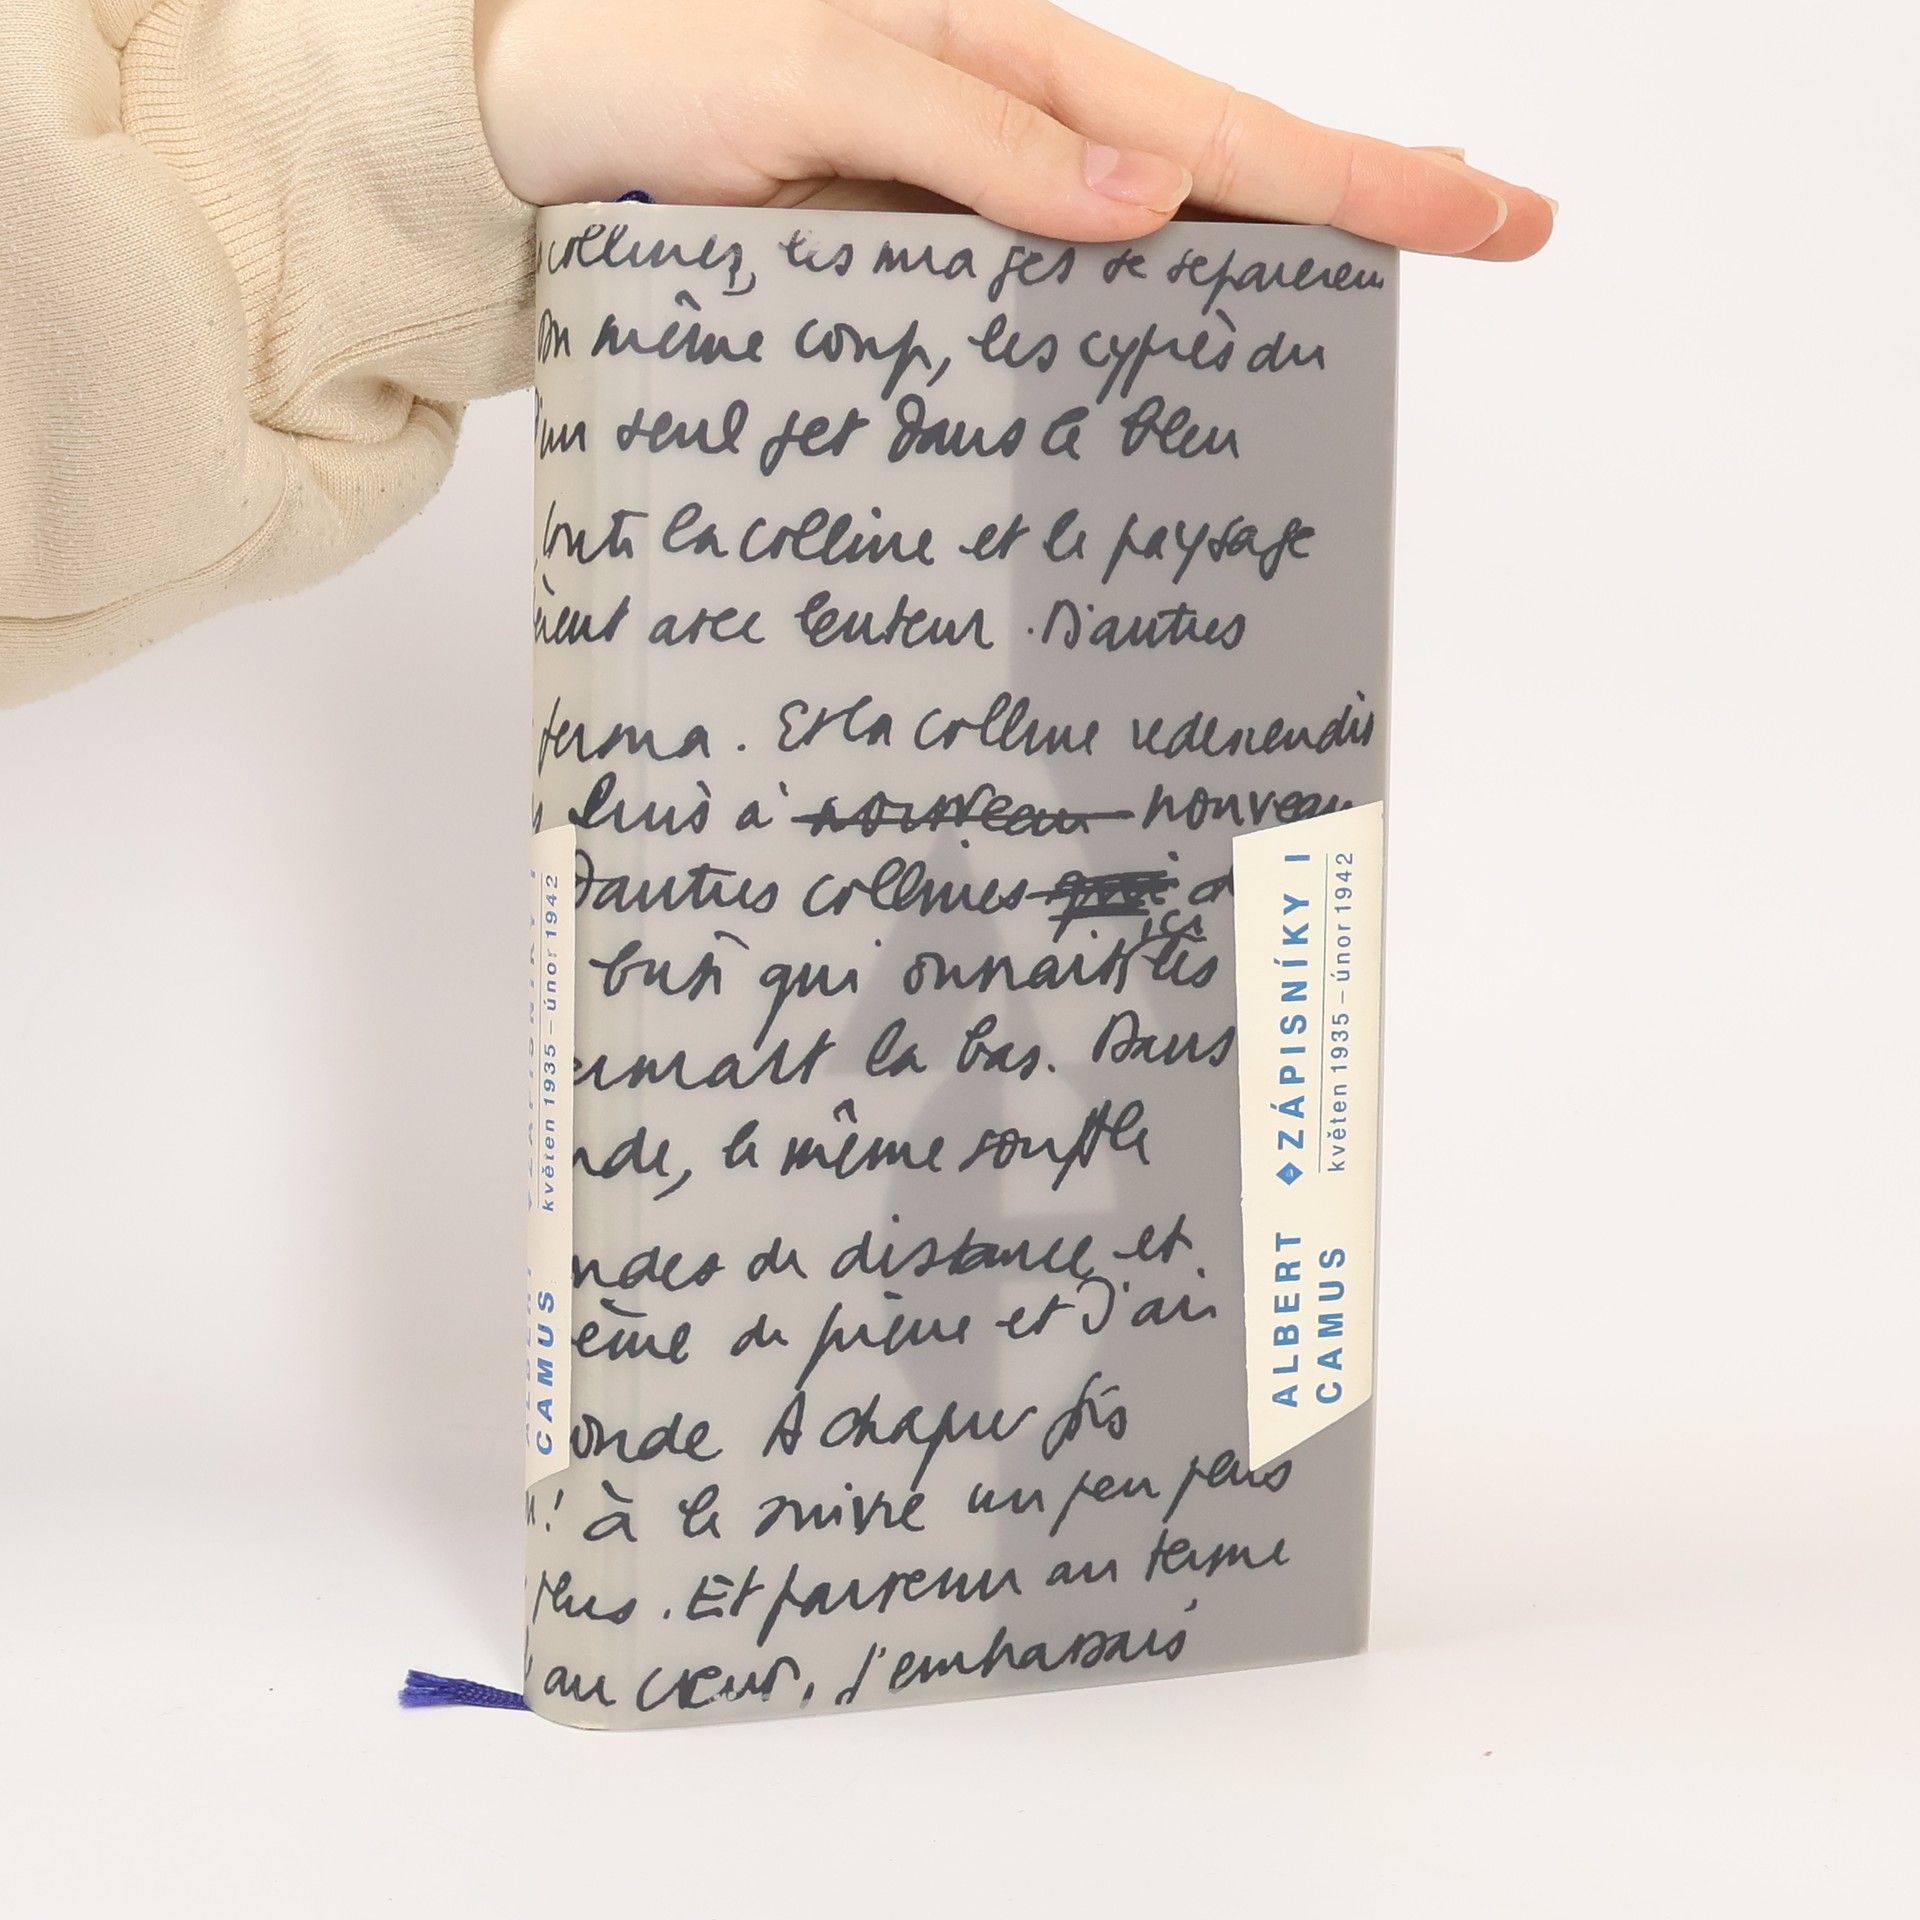 collines, les nuages se séparèrent
même coup, les cyprès du
d'un seul jet dans le bleu
toute la colline et le paysage
avec lenteur. D'autres
ferma. Et la colline redescendit
à nouveau nouveau
D'autres collines qui
ici
qui ouvrait les
fermait la bas. Dans
le même souffle
de distance et
de pierre et J'ai
A chaque fois
! à le suivre un peu plus
plus. Et parvenu au terme
au cœur, j'embrassais
ALBERT CAMUS
ZÁPISNÍKY I
květen 1935 – únor 1942
CAMUS
ZÁPISNÍKY I
květen 1935 – únor 1942